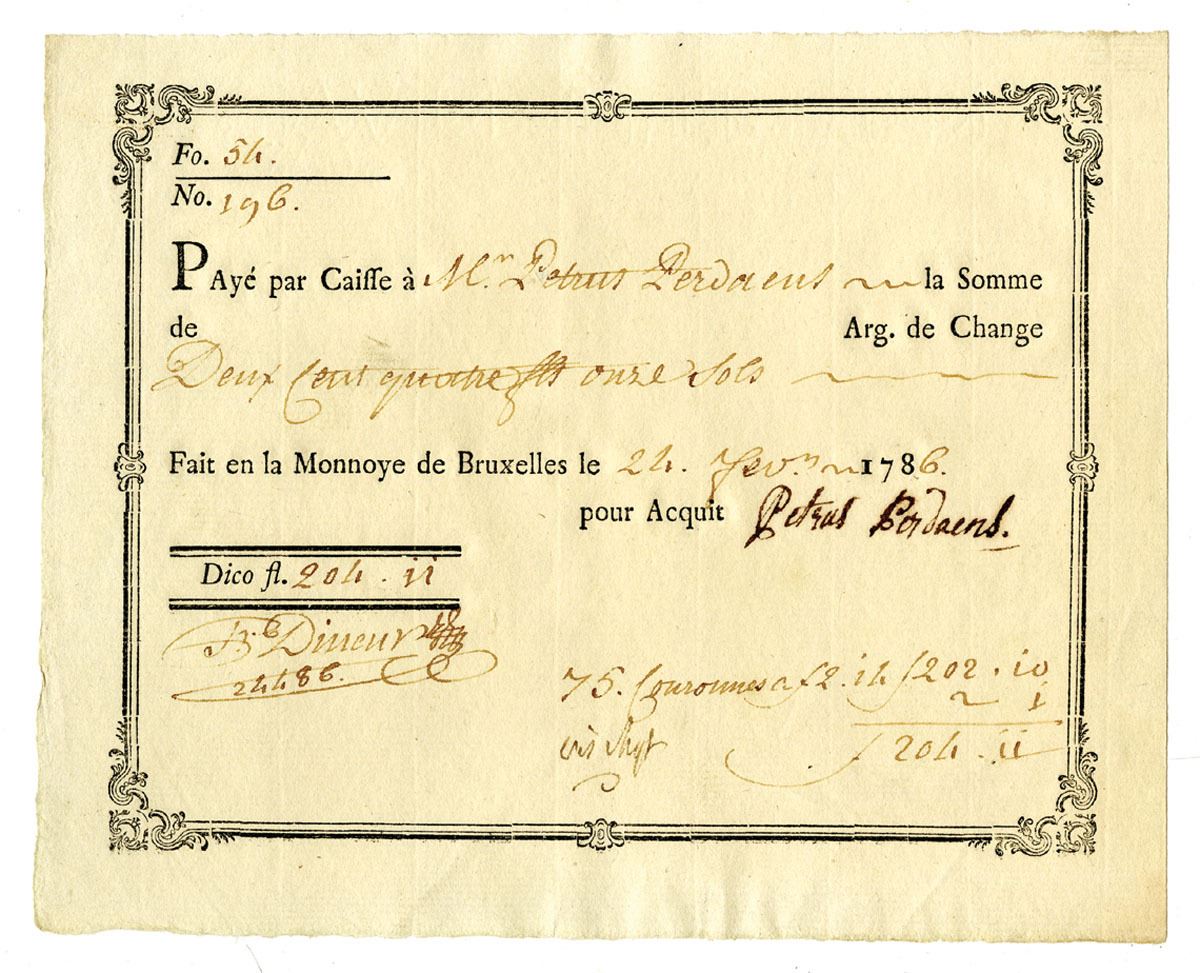 Fo. 54.
No. 196.
PAyé par Caisse à Mr. Petrus Perdaens la Somme
de Arg. de Change
Deux Cent quatre onze Sols
Fait en la Monnoye de Bruxelles le 24. fevr. 1786.
pour Acquit Petrus Perdaens.
Dico fl. 204. 11
75. Couronnes a f2. 14 f202. 10
2 1
f 204. 11